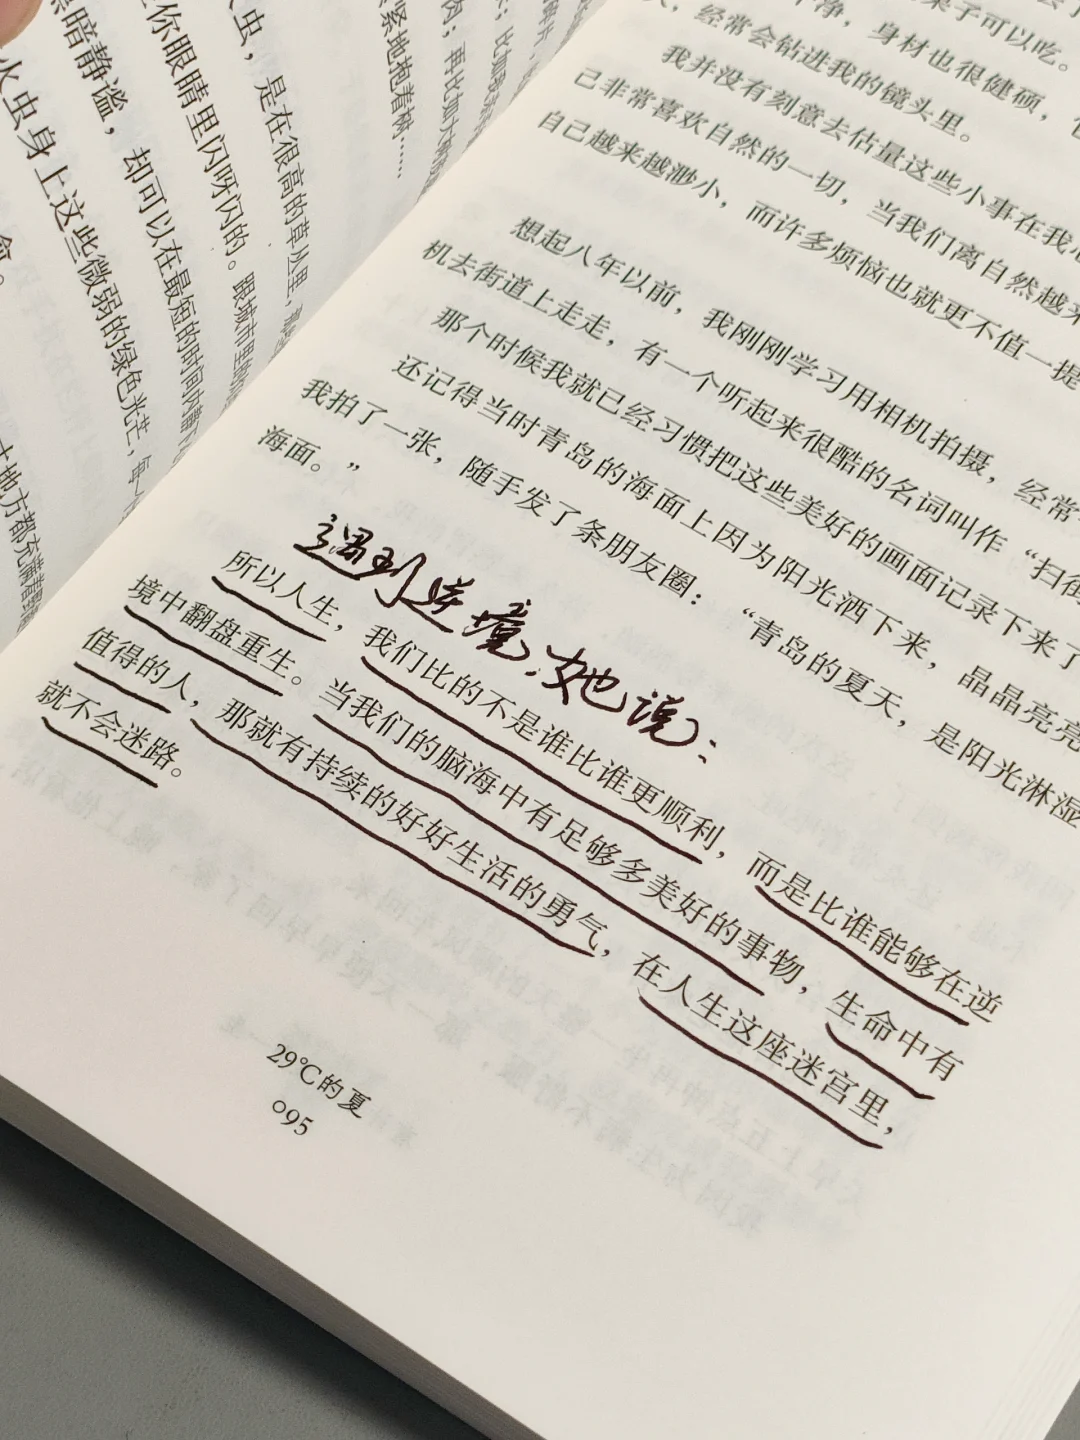 火虫，是在很高的草丛里，
在你眼睛里闪呀闪的。跟城市里的
黑暗静谧，却可以在最短的时间内
火虫身上这些微弱的绿色光芒，每
地方都充满
紧紧地抱着树……
肉；再比如
可以吃。
干净，身材也很健硕，
人，经常会钻进我的镜头里。
我并没有刻意去估量这些小事在我心
己非常喜欢自然的一切，当我们离自然越来
自己越来越渺小，而许多烦恼也就更不值一提
想起八年以前，我刚刚学习用相机拍摄，经常
机去街道上走走，有一个听起来很酷的名词叫作“扫街
那个时候我就已经习惯把这些美好的画面记录下来了
还记得当时青岛的海面上因为阳光洒下来，晶晶亮亮
我拍了一张，随手发了条朋友圈：“青岛的夏天，是阳光淋湿
海面。”
遇到逆境，她说：
所以人生，我们比的不是谁比谁更顺利，而是比谁能够在逆
境中翻盘重生。当我们的脑海中有足够多美好的事物，生命中有
值得的人，那就有持续的好好生活的勇气，在人生这座迷宫里，
就不会迷路。
29℃的夏
095